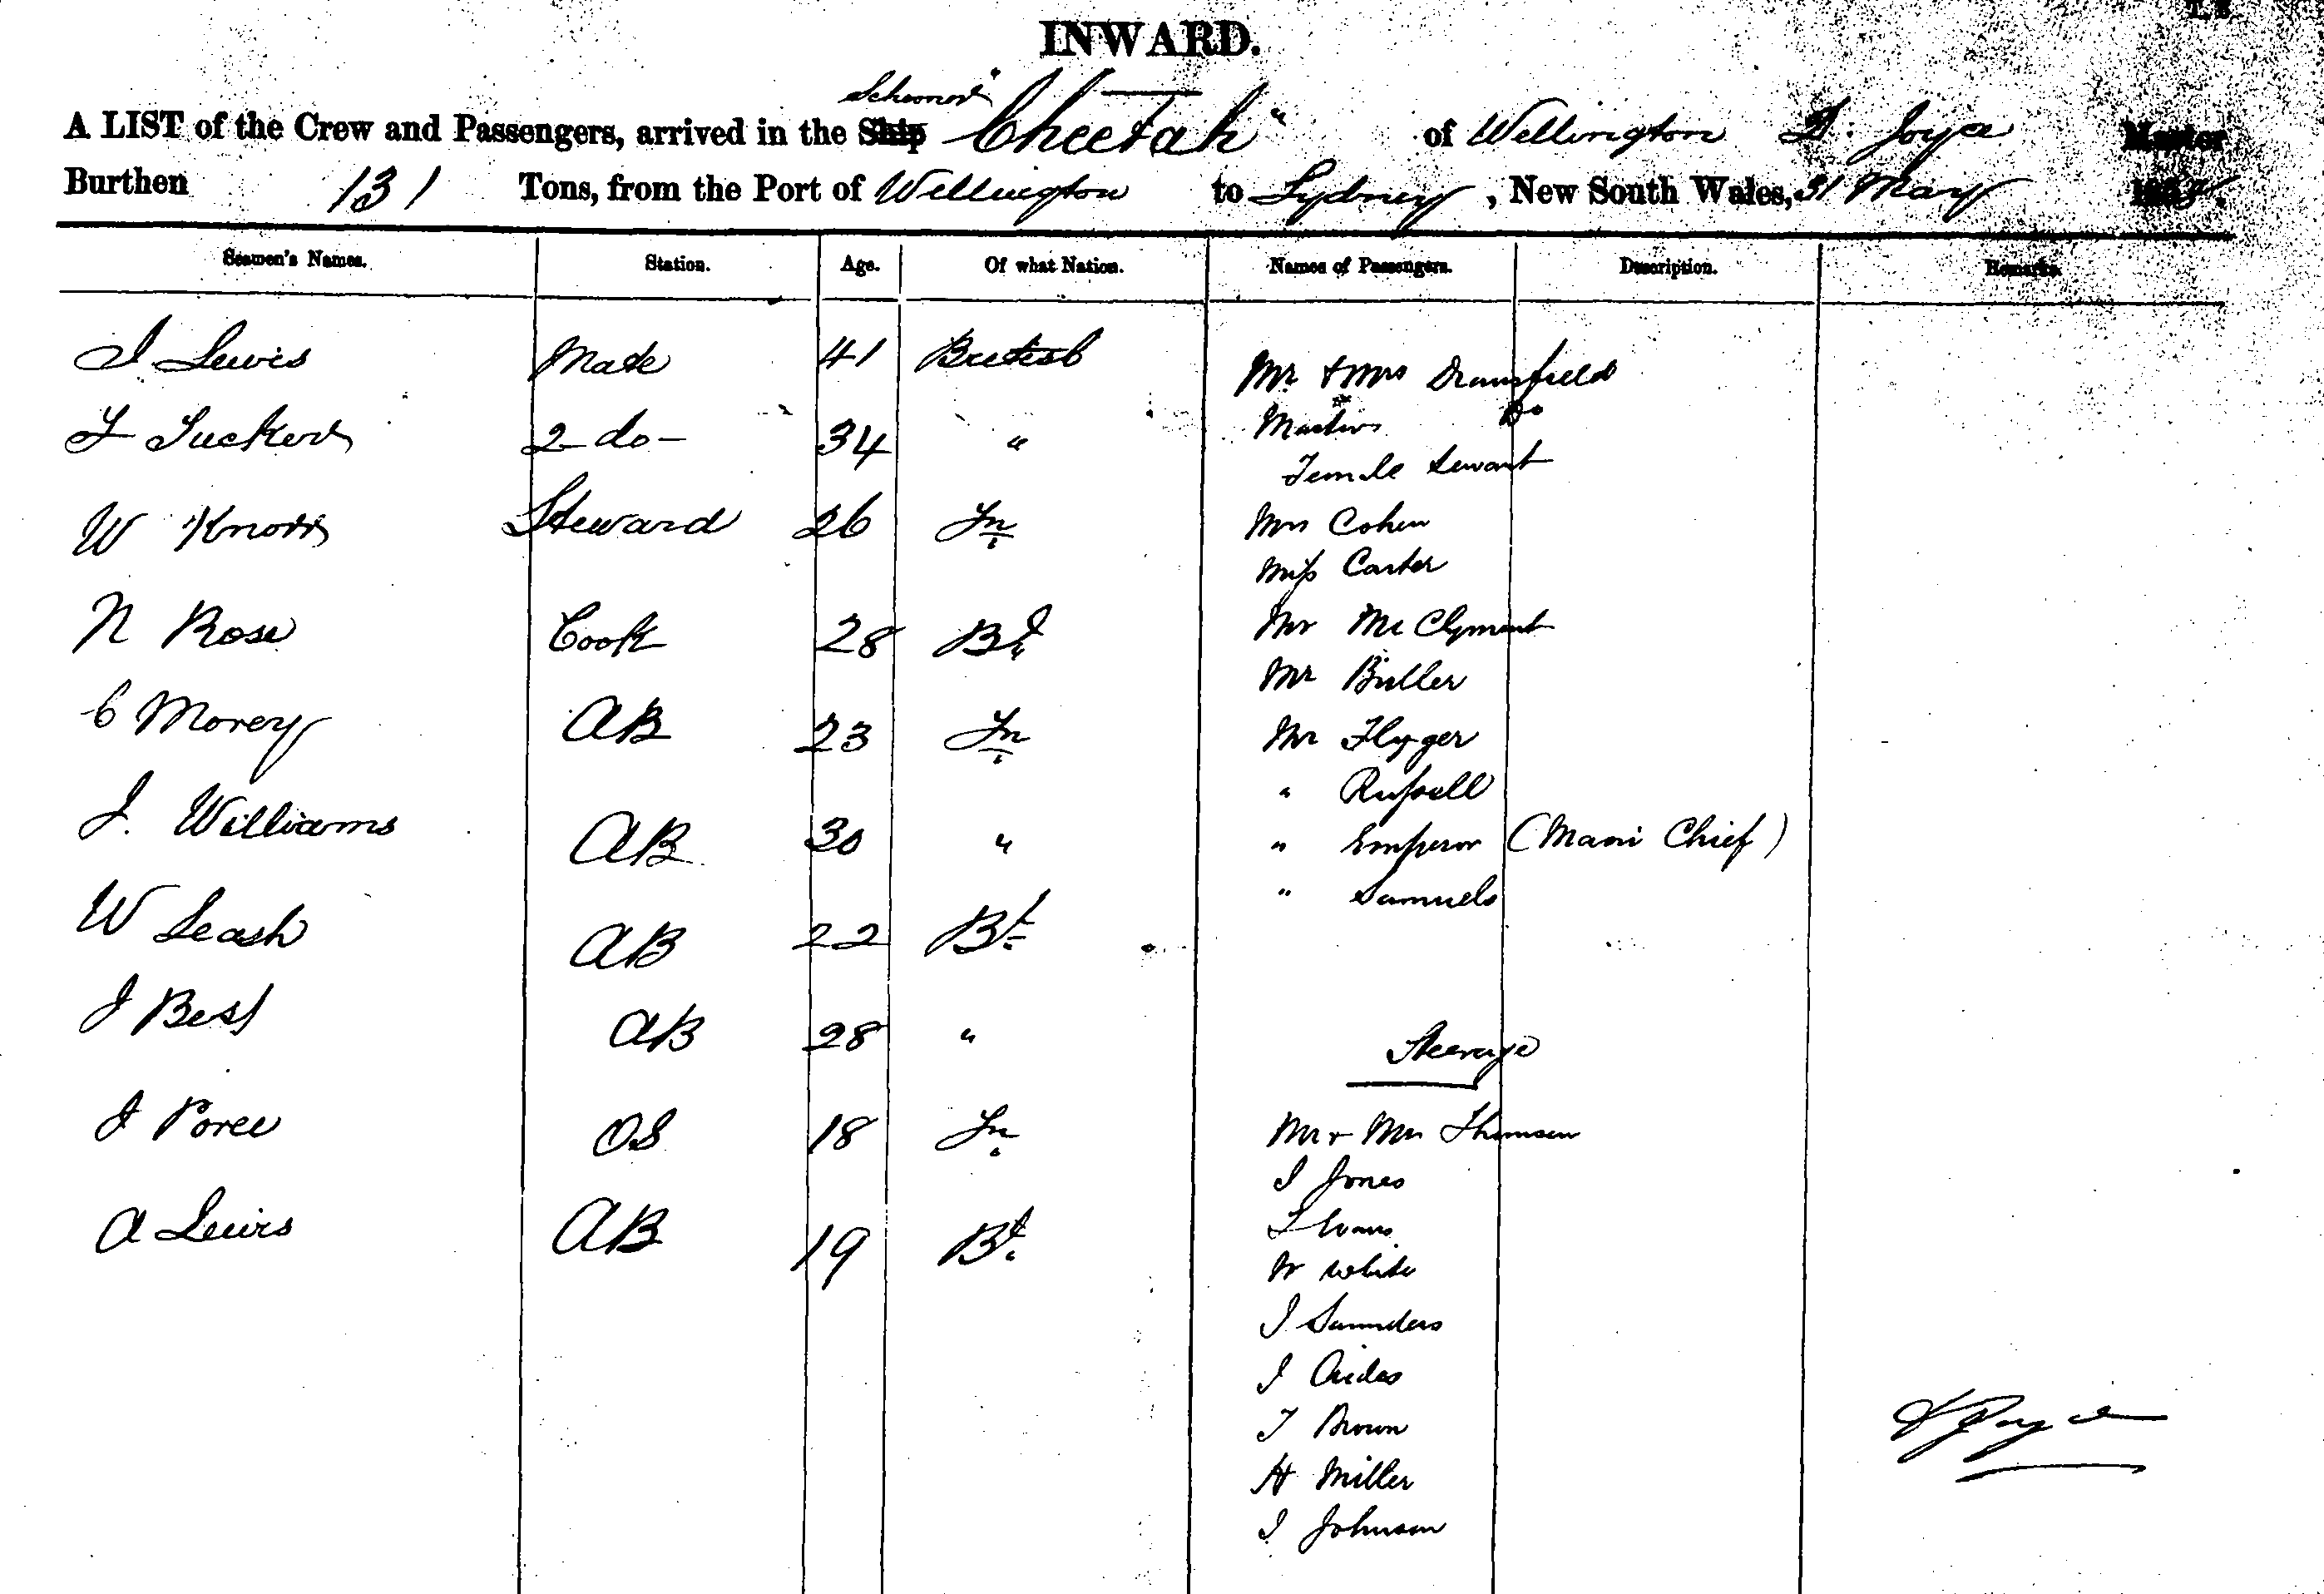 INWARD.
Schooner
A LIST of the Crew and Passengers, arrived in the Ship "Cheetah" of Wellington D. Joyce Master
Burthen 131 Tons, from the Port of Wellington to Sydney, New South Wales, 31 May
Seamen's Names. Station. Age. Of what Nation. Names of Passengers. Description. Remarks.
J Lewis Mate 41 British
F Tucker 2 do 34 "
W Knott Steward 26 Fn
N Rose Cook 28 Bt
C Morey AB 23 Fn
J. Williams AB 30 "
W Leash AB 22 Bt
J Best AB 28 "
J Poree OS 18 Fn
A Lewis AB 19 Bt.
Mr & Mrs Dransfield
Masters Do
Female Servant
Mrs Cohen
Miss Carter
Mr McClyment
Mr Buller
Mr Flyger
" Russell
" Emperor (Maori Chief)
" Samuels
Steerage
Mr & Mrs Thomsen
J Jones
Evans
W White
J Saunders
J
T Brown
H Miller
J Johnson
D Joyce